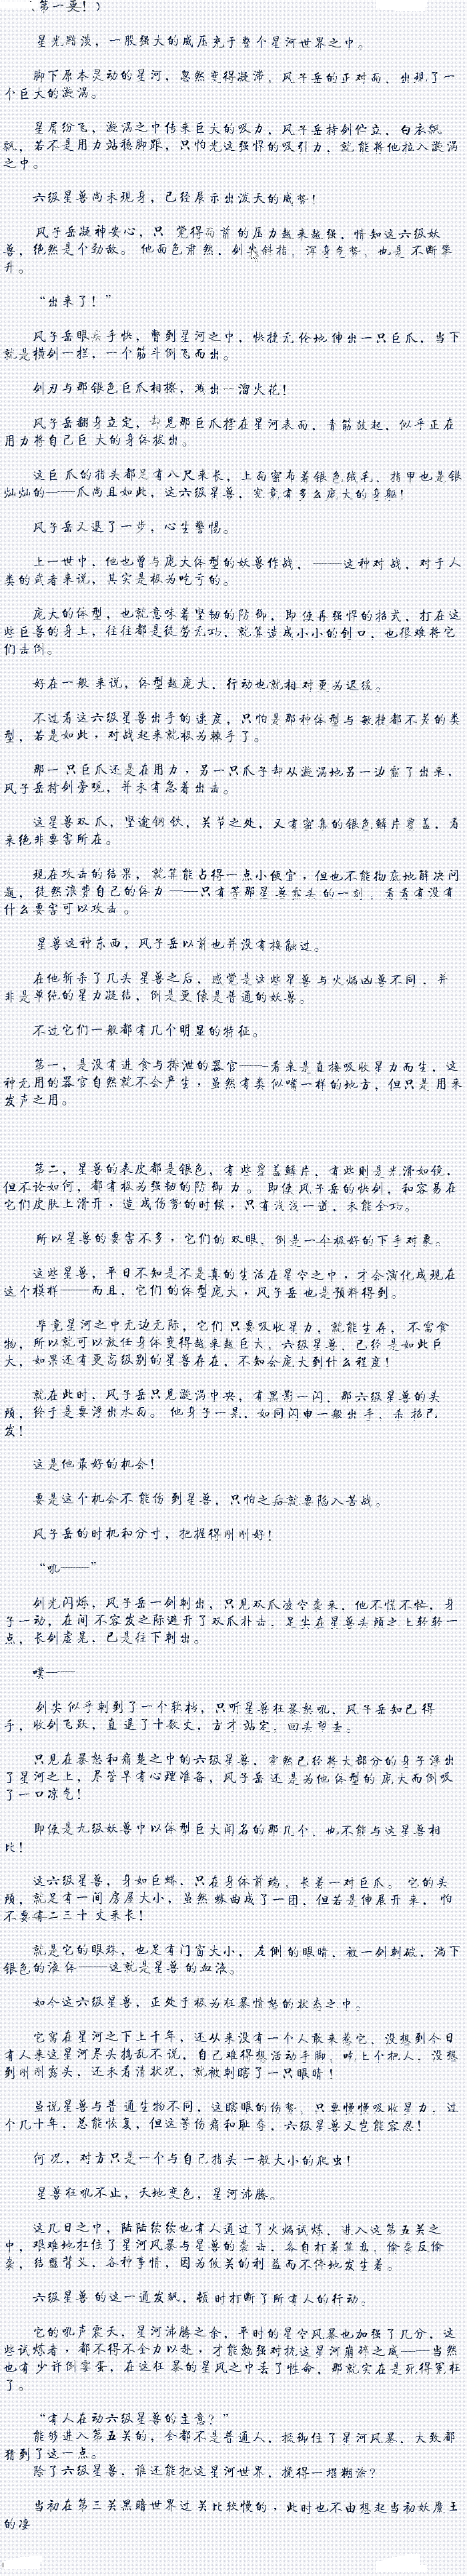 （第一更！）
星光黯淡，一股强大的威压充于整个星河世界之中。
脚下原本灵动的星河，忽然变得凝滞，风子岳的正对面、出现了一
个巨大的漩涡。
星屑纷飞，漩涡之中传来巨大的吸力，风子岳持剑伫立，白衣飘
飘，若不是用力站稳脚跟，只怕光这强悍的吸引力，就能将他拉入漩涡
之中。
六级星兽尚未现身，已经展示出泼天的威势！
风子岳凝神安心，只 觉得面前的压力越来越强，情知这六级妖
兽，绝然是个劲敌。 他面色肃然，剑尖斜指，浑身气势，也是不断攀
升。
“出来了！”
风子岳眼疾手快，瞥到星河之中，快捷无伦地伸出一只巨爪，当下
就是横剑一拦，一个筋斗倒飞而出。
剑刃与那银色巨爪相擦，溅出一溜火花！
风子岳翻身立定，却见那巨爪撑在星河表面，青筋鼓起，似乎正在
用力将自己巨大的身体拔出。
这巨爪的指头都足有八尺来长，上面密布着银色绒毛，指甲也是银
灿灿的——爪尚且如此，这六级星兽，究竟有多么庞大的身躯！
风子岳又退了一步，心生警惕。
上一世中，他也曾与庞大体型的妖兽作战，——这种对战，对于人
类的武者来说，其实是极为吃亏的。
庞大的体型，也就意味着坚韧的防御，即使再强悍的招式，打在这
些巨兽的身上，往往都是徒劳无功，就算造成小小的创口，也很难将它
们击倒。
好在一般来说，体型越庞大，行动也就相对更为迟缓。
不过看这六级星兽出手的速度，只怕是那种体型与敏捷都不差的类
型，若是如此，对战起来就极为棘手了。
那一只巨爪还是在用力，另一只爪子却从漩涡地另一边露了出来，
风子岳持剑旁观，并未有急着出击。
这星兽双爪，坚逾钢铁，关节之处，又有密集的银色鳞片覆盖，看
来绝非要害所在。
现在攻击的结果，就算能占得一点小便宜，但也不能彻底地解决问
题，徒然浪费自己的体力——只有等那星兽露头的一刻，看看有没有
什么要害可以攻击。
星兽这种东西，风子岳以前也并没有接触过。
在他斩杀了几头星兽之后，感觉是这些星兽与火焰凶兽不同，并
非是单纯的星力凝结，倒是更像是普通的妖兽。
不过它们一般都有几个明显的特征。
第一，是没有进食与排泄的器官——看来是直接吸收星力而生，这
种无用的器官自然就不会产生，虽然有类似嘴一样的地方，但只是用来
发声之用。
第二，星兽的表皮都是银色，有些覆盖鳞片，有些则是光滑如镜，
但不论如何，都有极为强韧的防御力。 即使风子岳的快剑，和容易在
它们皮肤上滑开，造成伤势的时候，只有浅浅一道，未能全功。
所以星兽的要害不多，它们的双眼，倒是一个极好的下手对象。
这些星兽，平日不知是不是真的生活在星空之中，才会演化成现在
这个模样——而且，它们的体型庞大，风子岳也是预料得到。
毕竟星河之中无边无际，它们只要吸收星力，就能生存，不需食
物，所以就可以放任身体变得越来越巨大，六级星兽、已经是如此巨
大，如果还有更高级别的星兽存在，不知会庞大到什么程度！
就在此时，风子岳只见漩涡中央，有黑影一闪、那六级星兽的头
颅，终于是要浮出水面。 他身子一晃，如同闪电一般出手、杀招已
发！
这是他最好的机会！
要是这个机会不能伤到星兽，只怕之后就要陷入苦战。
风子岳的时机和分寸，把握得刚刚好！
“吼——”
剑光闪烁，风子岳一剑刺出，只见双爪凌空袭来，他不慌不忙，身
子一动，在间不容发之际避开了双爪扑击，足尖在星兽头颅之上轻轻一
点，长剑虚晃，已是往下刺出。
噗——
剑尖似乎刺到了一个软档，只听星兽狂暴怒吼，风子岳知已得
手，收剑飞跃，直退了十数丈，方才站定，回头望去。
只见在暴怒和痛楚之中的六级星兽，突然已经将大部分的身子浮出
了星河之上，尽管早有心理准备，风子岳还是为他体型的庞大而倒吸
了一口凉气！
即使是九级妖兽中以体型巨大闻名的那几个、也不能与这星兽相
比！
这六级星兽，身如巨蟒，只在身体前端，长着一对巨爪。 它的头
颅，就足有一间房屋大小，虽然蜷曲成了一团，但若是伸展开来，怕
不要有二三十丈来长！
就是它的眼珠，也足有门窗大小，左侧的眼睛，被一剑刺破，淌下
银色的液体——这就是星兽的血液。
如今这六级星兽，正处于极为狂暴愤怒的状态之中。
它窝在星河之下上千年，还从来没有一个人敢来惹它、没想到今日
有人来这星河尽头捣乱不说，自己难得想活动手脚、吃上个把人，没想
到刚刚露头，还未看清状况，就被刺瞎了一只眼睛！
虽说星兽与普通生物不同，这瞎眼的伤势、只要慢慢吸收星力，过
个几十年，总能恢复，但这等伤痛和耻辱，六级星兽又岂能容忍！
何况，对方只是一个与自己指头一般大小的爬虫！
星兽狂吼不止，天地变色，星河沸腾。
这几日之中，陆陆续续也有人通过了火焰试炼、进入这第五关之
中，艰难地抗住了星河风暴与星兽的袭击，各自打着算盘，偷袭反偷
袭，结盟背义，各种事情，因为攸关的利益而不停地发生着。
六级星兽的这一通发飙，顿时打断了所有人的行动。
它的吼声震天，星河沸腾之余，平时的星空风暴也加强了几分，这
些试炼者，都不得不全力以赴，才能勉强对抗这星河崩碎之威——当然
也有少许倒霉蛋，在这狂暴的星风之中丢了性命，那就实在是死得冤枉
了。
“有人在动六级星兽的主意？”
能够进入第五关的，全都不是普通人，抵御住了星河风暴，大致都
猜到了这一点。
除了六级星兽，谁还能把这星河世界，搅得一塌糊涂？
当初在第三关黑暗世界过关比较慢的，此时也不由想起当初妖魔王
的凄